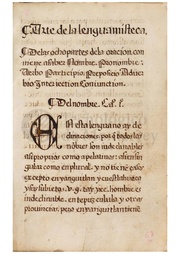 ¶ Arte de la lengua mixteca.
¶ De las ocho partes de la oracion, con
uiene a saber Nombre. Pronombre.
Verbo Participio. Preposicio Aduer
bio Interiection Coniunction.
¶ Del nombre. Ca. 1.
EN esta lengua no ay de
clinaciones, por q̃ todos los
nõbres son indeclinables
asi proprios como apelatiuos: asi en sin
gular como en plural. y no tiene
excepto en yanguitlan y cuestlahuaca
y su subiecto. v. g. tay nicc. hombre. es
indeclinable. en tepuzculula y otras
prouincias, pero en yanguitlan tiene